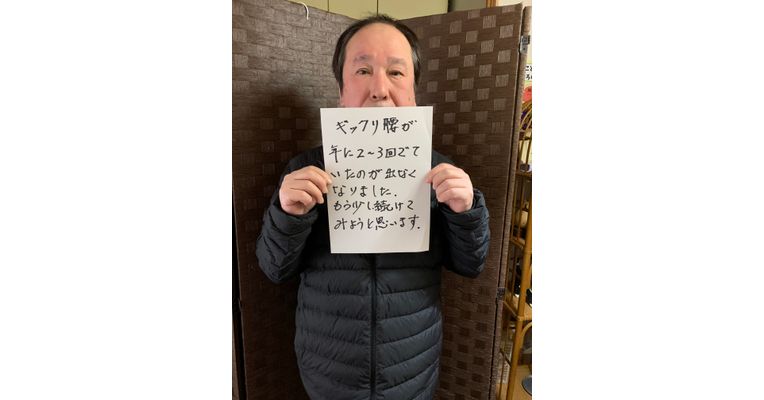 ギックリ腰が
年に2~3回でて
いたのが出なく
なりました.
もう少し続けて
みようと思います.